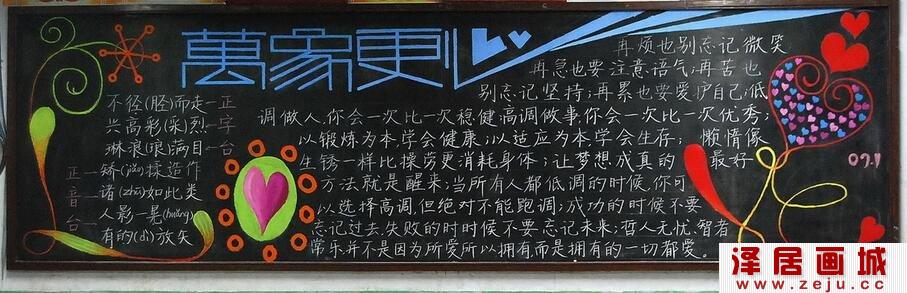 萬家更心
不径(胫)而走
兴高彩(采)烈
琳浪(琅)满目
正字台
矫(jiǎo)揉造作
诸(zhū)如此类
人影一晃(huǎng)
有的(dì)放矢
正音台
再烦也别忘记微笑
再急也要注意语气;再苦也
别忘记坚持;再累也要爱护自己;低
调做人,你会一次比一次稳健高调做事,你会一次比一次优秀;
以锻炼为本,学会健康;以适应为本,学会生存;懒惰像
生锈一样比操劳更消耗身体;让梦想成真的最好
方法就是醒来;当所有人都低调的时候,你可
以选择高调,但绝对不能跑调;成功的时候不要
忘记过去,失败的时时候不要忘记未来;哲人无忧,智者
常乐并不是因为所爱所以拥有而是拥有的一切都爱。
07.1
泽居画城
www.zeju.cc